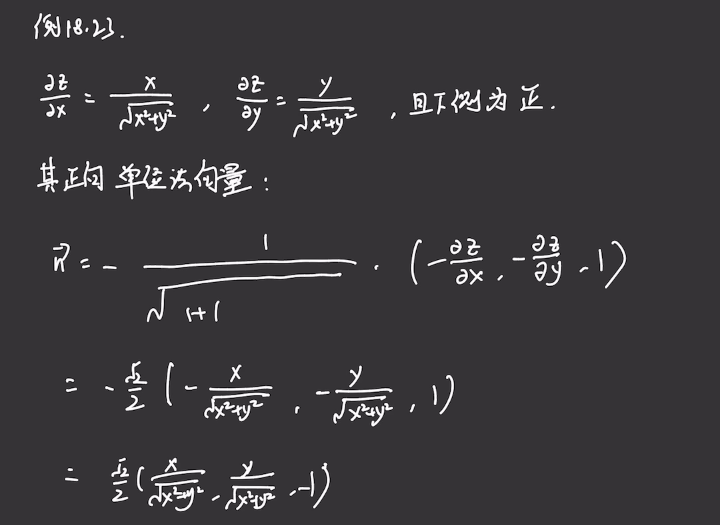 例18.23.
∂z/∂x = x/√(x²+y²) , ∂z/∂y = y/√(x²+y²) , 且下侧为正.
其正向 单位法向量:
n⃗ = - 1/√(1+1) · (-∂z/∂x , -∂z/∂y , 1)
= - √2/2 (- x/√(x²+y²) , - y/√(x²+y²) , 1)
= √2/2 (x/√(x²+y²) , y/√(x²+y²) , -1)